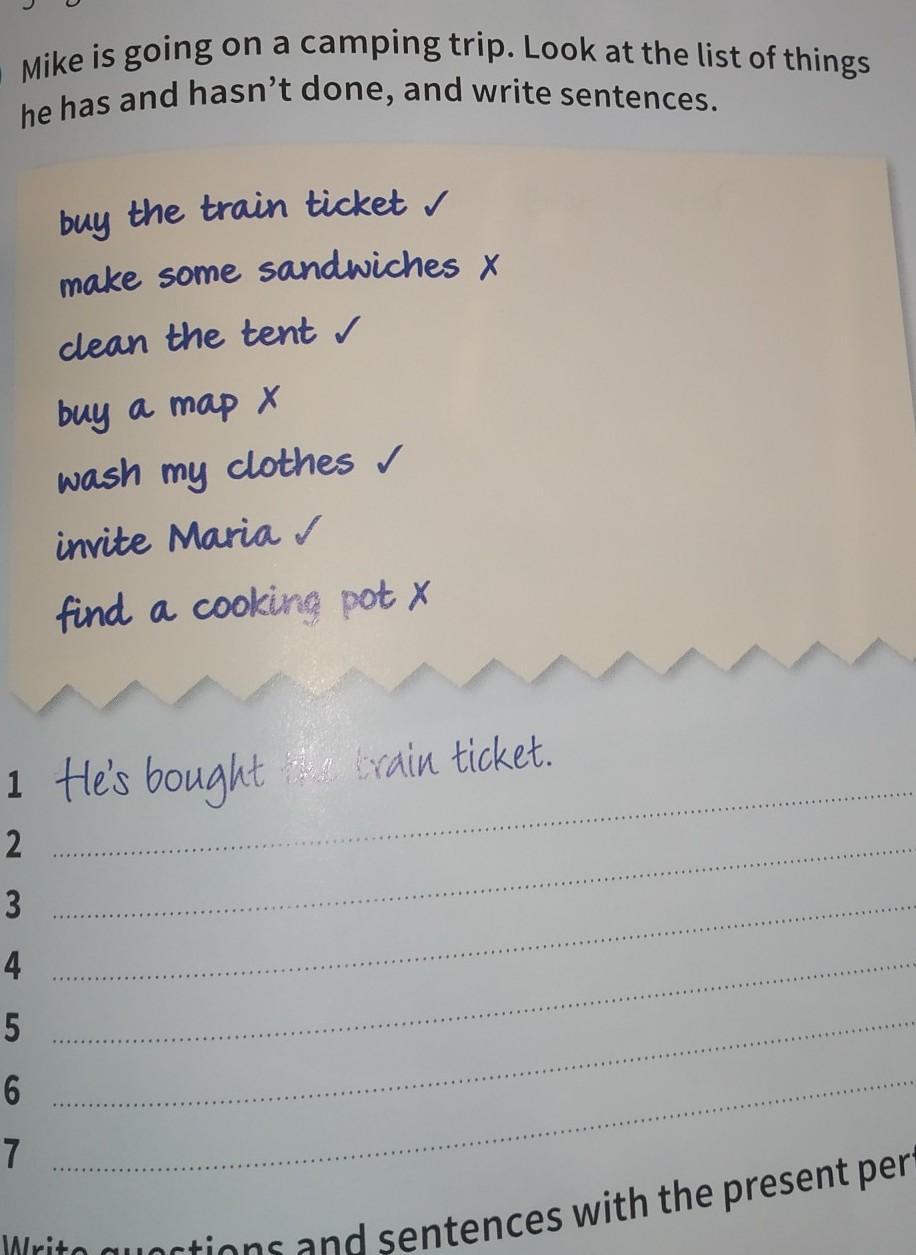 Mike is going on a camping trip. Look at the list of things
he has and hasn't done, and write sentences.
buy the train ticket ✓
make some sandwiches X
clean the tent ✓
buy a map X
wash my clothes ✓
invite Maria ✓
find a cooking pot X
1 He's bought the train ticket.
2
3
4
5
6
7
Write questions and sentences with the present